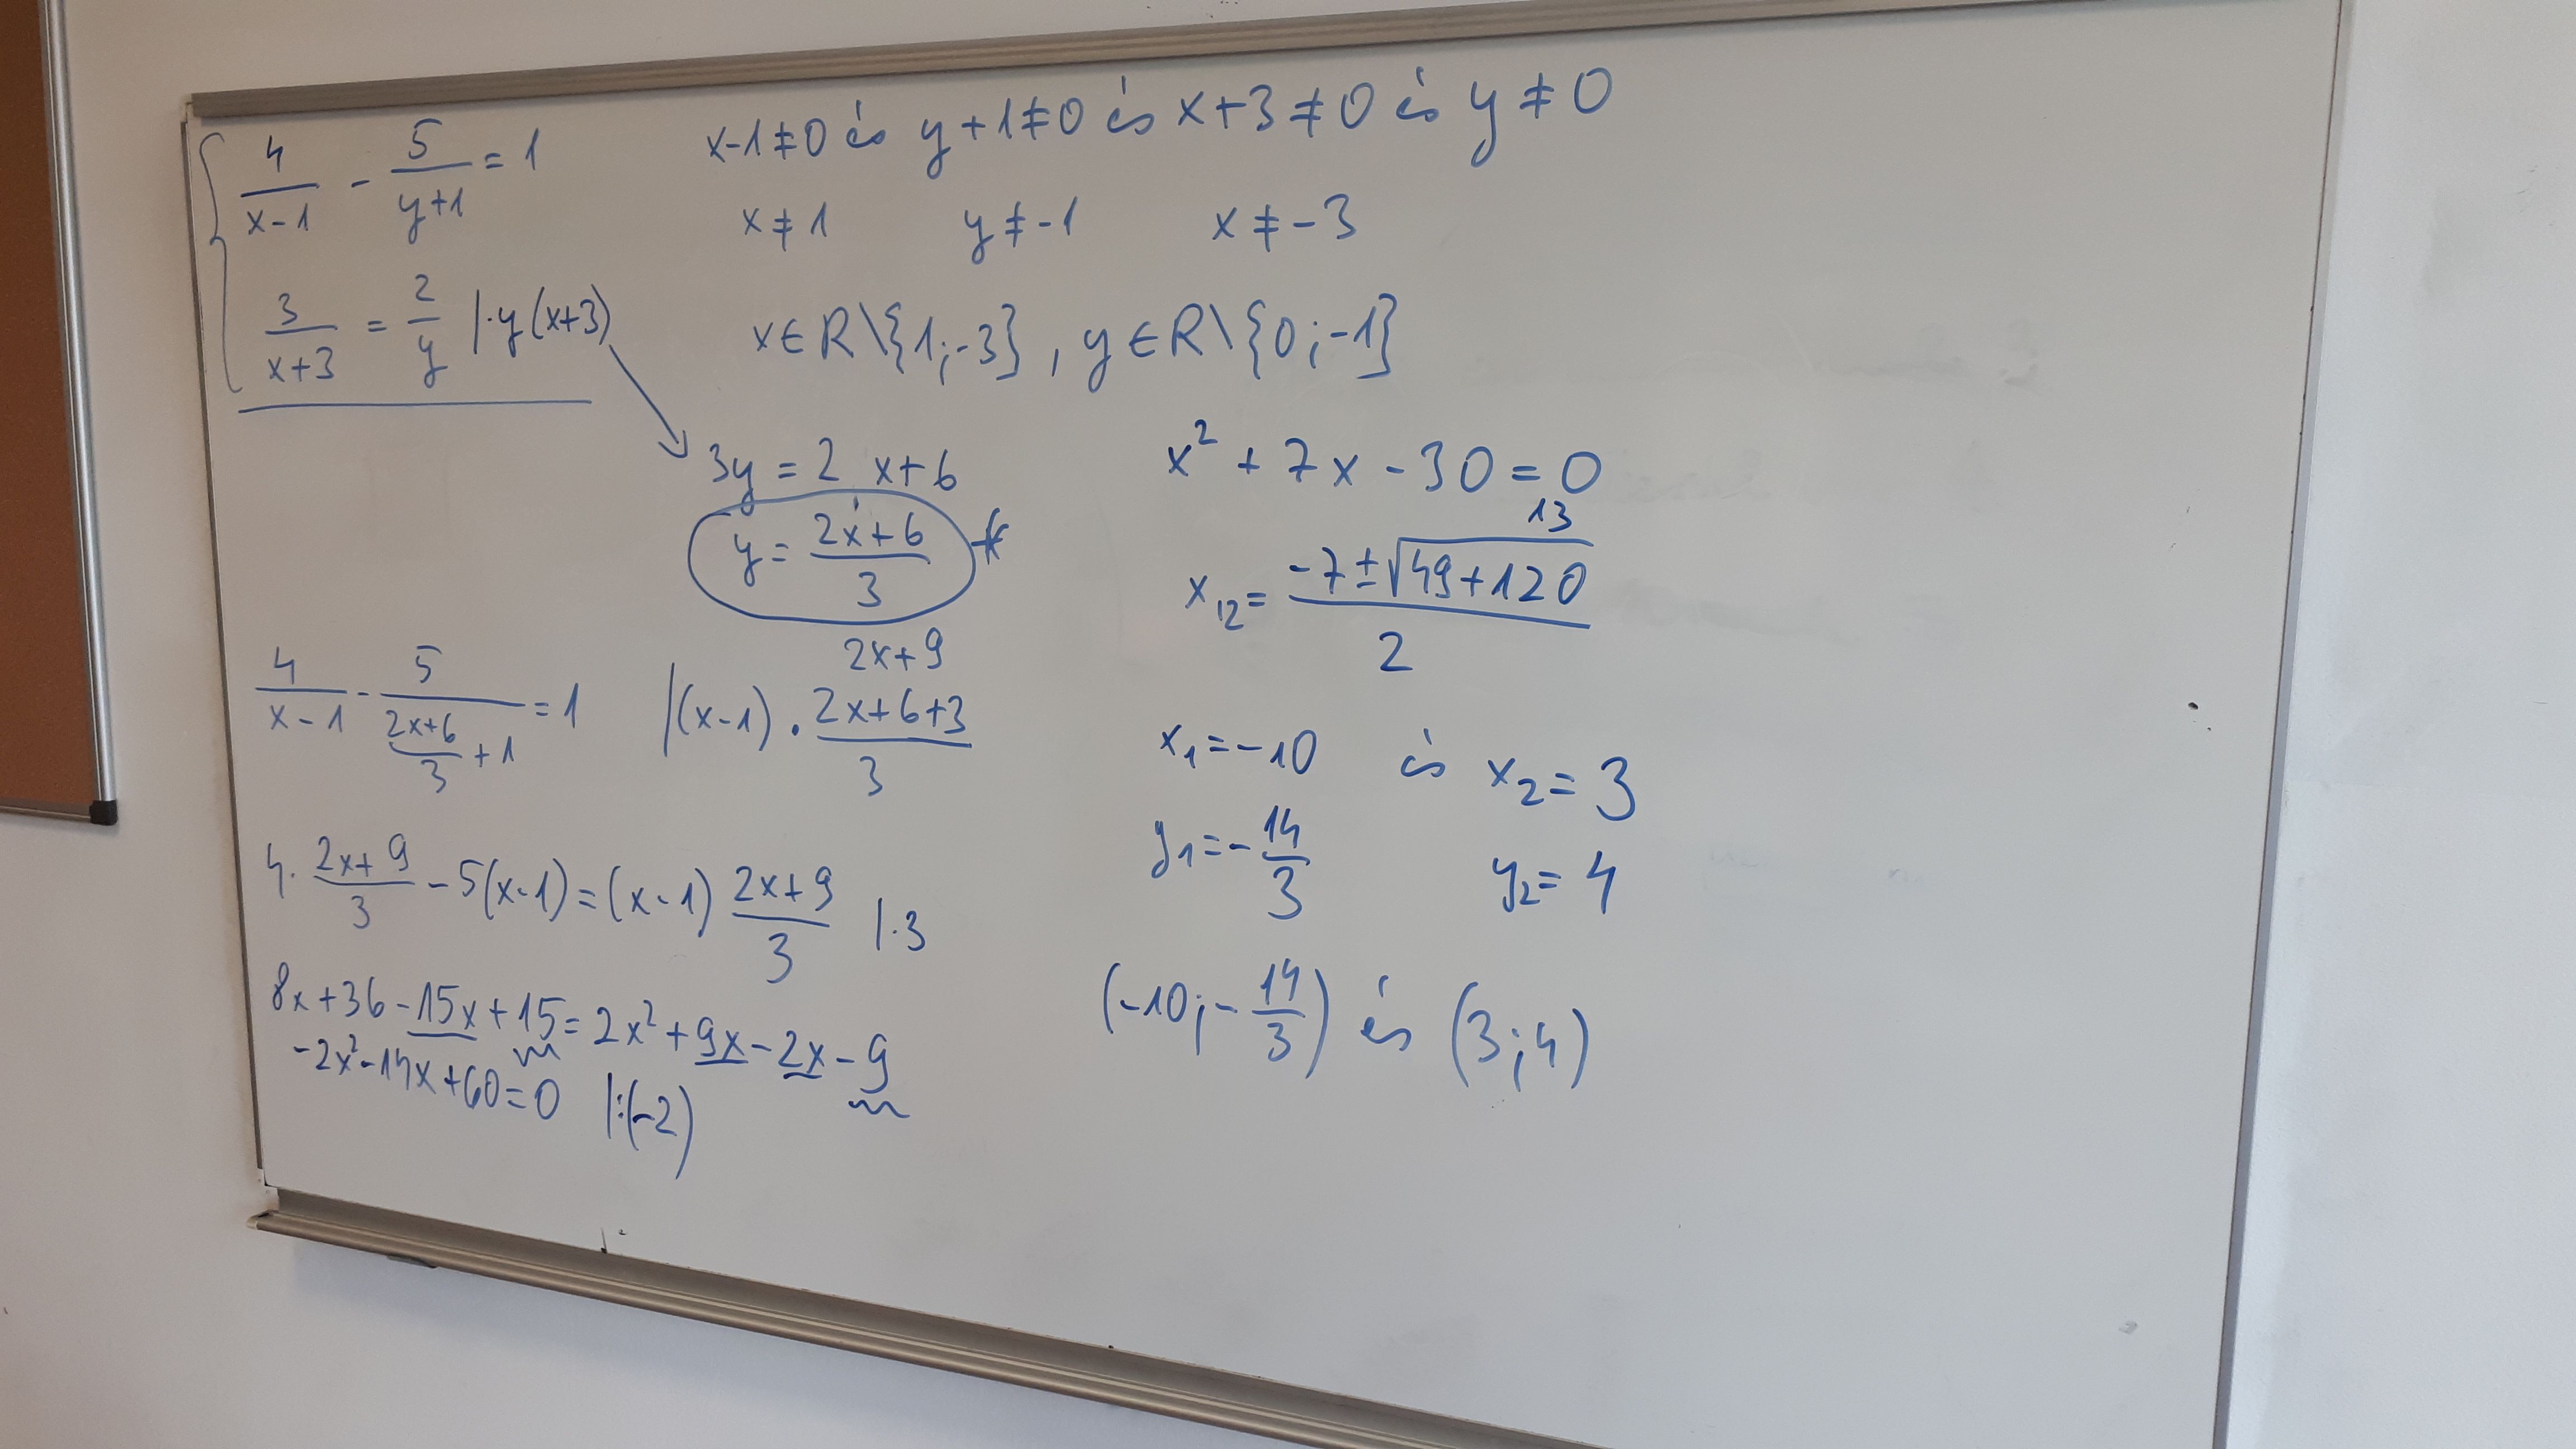 4/(x-1) - 5/(y+1) = 1
3/(x+3) = 2/y |·y(x+3)
x-1≠0 és y+1≠0 és x+3≠0 és y≠0
x≠1 y≠-1 x≠-3
x∈R\{1;-3}, y∈R\{0;-1}
3y = 2x+6
y = (2x+6)/3 *
4/(x-1) - 5/((2x+6)/3 + 1) = 1 |(x-1)·(2x+6+3)/3
2x+9
4·(2x+9)/3 - 5(x-1) = (x-1) (2x+9)/3 |·3
8x+36-15x+15 = 2x²+9x-2x-9
-2x²-14x+60=0 |:(-2)
x² + 7x - 30 = 0
13
x₁₂ = (-7±√(49+120))/2
x₁=-10 és x₂=3
y₁=-14/3 y₂=4
(-10;-14/3) és (3;4)